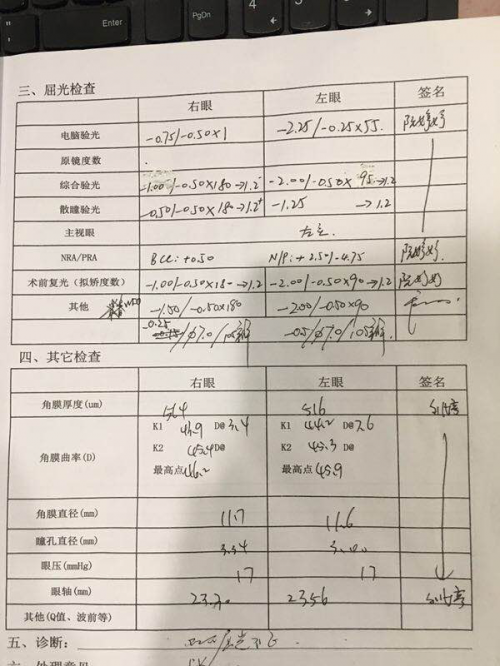 Enter
PgOn
4
5
三、屈光检查
右眼 左眼 签名
电脑验光 -0.75/-0.50×1 -2.25/-0.25×55
原镜度数
综合验光 -1.00/-0.50×180→1.2 -2.00/-0.50×95→1.2
散瞳验光 -0.50/-0.50×180→1.2+ -1.25 →1.2
主视眼
NRA/PRA BCC:+0.50 N/P:+2.50/-4.75
术前复光（拟矫度数） -1.00/-0.50×180→1.2 -2.00/-0.50×90→1.2
其他 -1.50/-0.50×180 -2.00/-0.50×90
四、其它检查
右眼 左眼 签名
角膜厚度(um) 514 516
角膜曲率(D) K1 43.9 D@ 3.4 K1 44.2 D@ 7.6
K2 45.4 D@ K2 45.3 D@
最高点 46.2 最高点 45.9
角膜直径(mm) 11.7 11.6
瞳孔直径(mm) 3.34
眼压(mmHg) 17 17
眼轴(mm) 23.56
其他(Q值、波前等)
五、诊断：